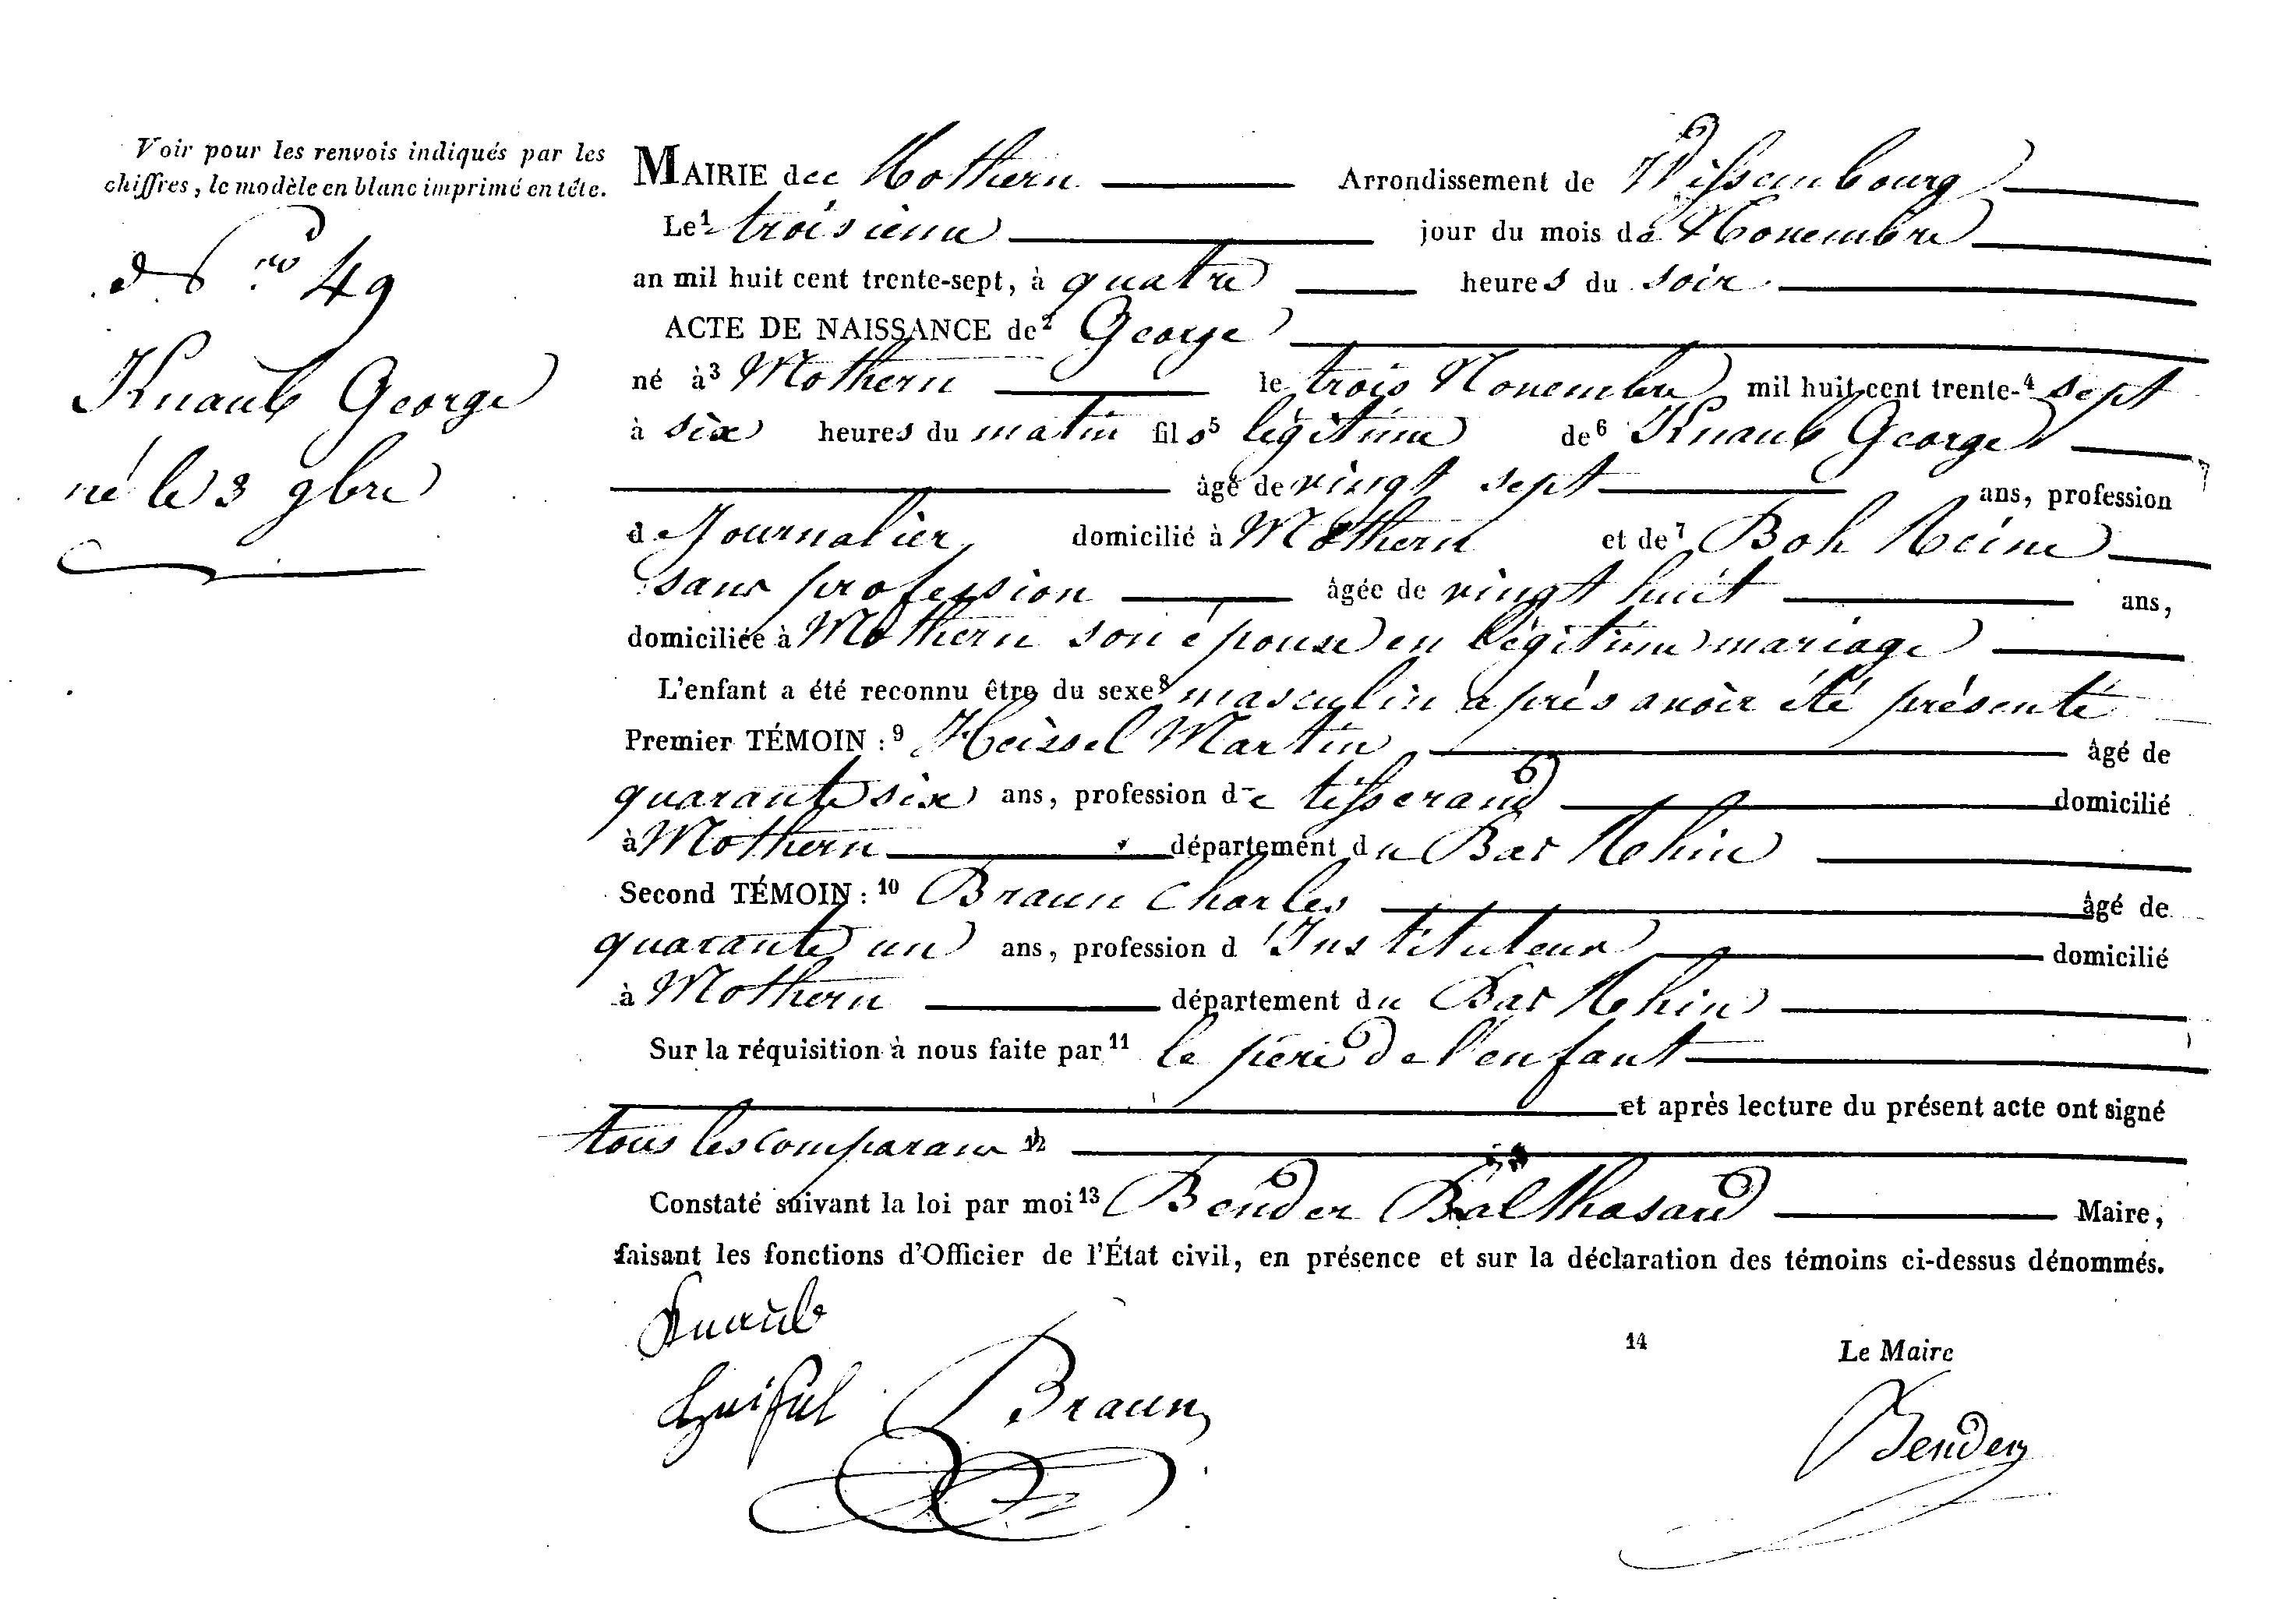 Voir pour les renvois indiqués par les
chiffres, le modèle en blanc imprimé en tête.
no 49
Knaub George
né le 3 9bre
MAIRIE de Mothern Arrondissement de Wissembourg
Le 1 troisieme jour du mois de Novembre
an mil huit cent trente-sept, à quatre heures du soir
ACTE DE NAISSANCE de 2 George
né à 3 Mothern le trois Novembre mil huit cent trente- 4 sept
à six heures du matin fils 5 légitime de 6 Knaub George
âgé de vingt sept ans, profession
de Journalier domicilié à Mothern et de 7 Boh Reine
sans profession âgée de vingt huit ans,
domiciliée à Mothern son épouse en légitime mariage
L'enfant a été reconnu être du sexe 8 masculin après avoir été présenté
Premier TÉMOIN : 9 Heissel Martin âgé de
quarante six ans, profession de tisserand domicilié
à Mothern département du Bas Rhin
Second TÉMOIN : 10 Braun Charles âgé de
quarante un ans, profession d'Instituteur domicilié
à Mothern département du Bas Rhin
Sur la réquisition à nous faite par 11 le père de l'enfant
et après lecture du présent acte ont signé
tous les comparans 12
Constaté suivant la loi par moi 13 Bender Balthasard Maire,
faisant les fonctions d'Officier de l'État civil, en présence et sur la déclaration des témoins ci-dessus dénommés.
Knaub
14 Le Maire
Heissel Braun
Bender